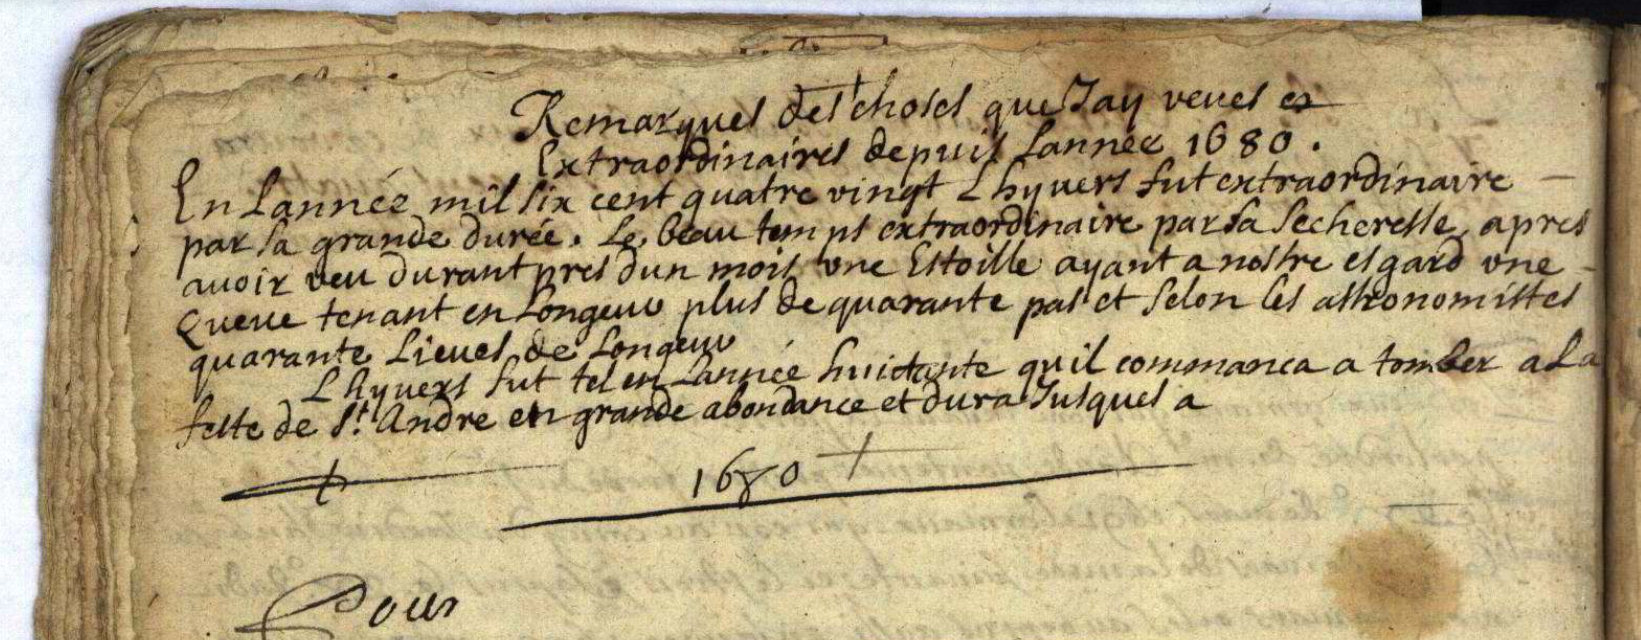 Remarques des choses que Jay veues et
Extraordinaires depuis Lannéé 1680.
En Lannéé mil six cent quatre vingt Lhyvers fut extraordinaire
par sa grande duréé. Le beau temps extraordinaire par sa secheresse, apres
avoir veu durant pres dun mois vne Estoille ayant a nostre esgard vne
Queue tenant en Longeur plus de quarante pas et selon les astronomistes
quarante Lieues de Longeur
Lhyvers fut tel en Lannéé huictante quil commanca a tomber a La
feste de St. Andre en grande abondance et dura Jusques a
1680
Pour